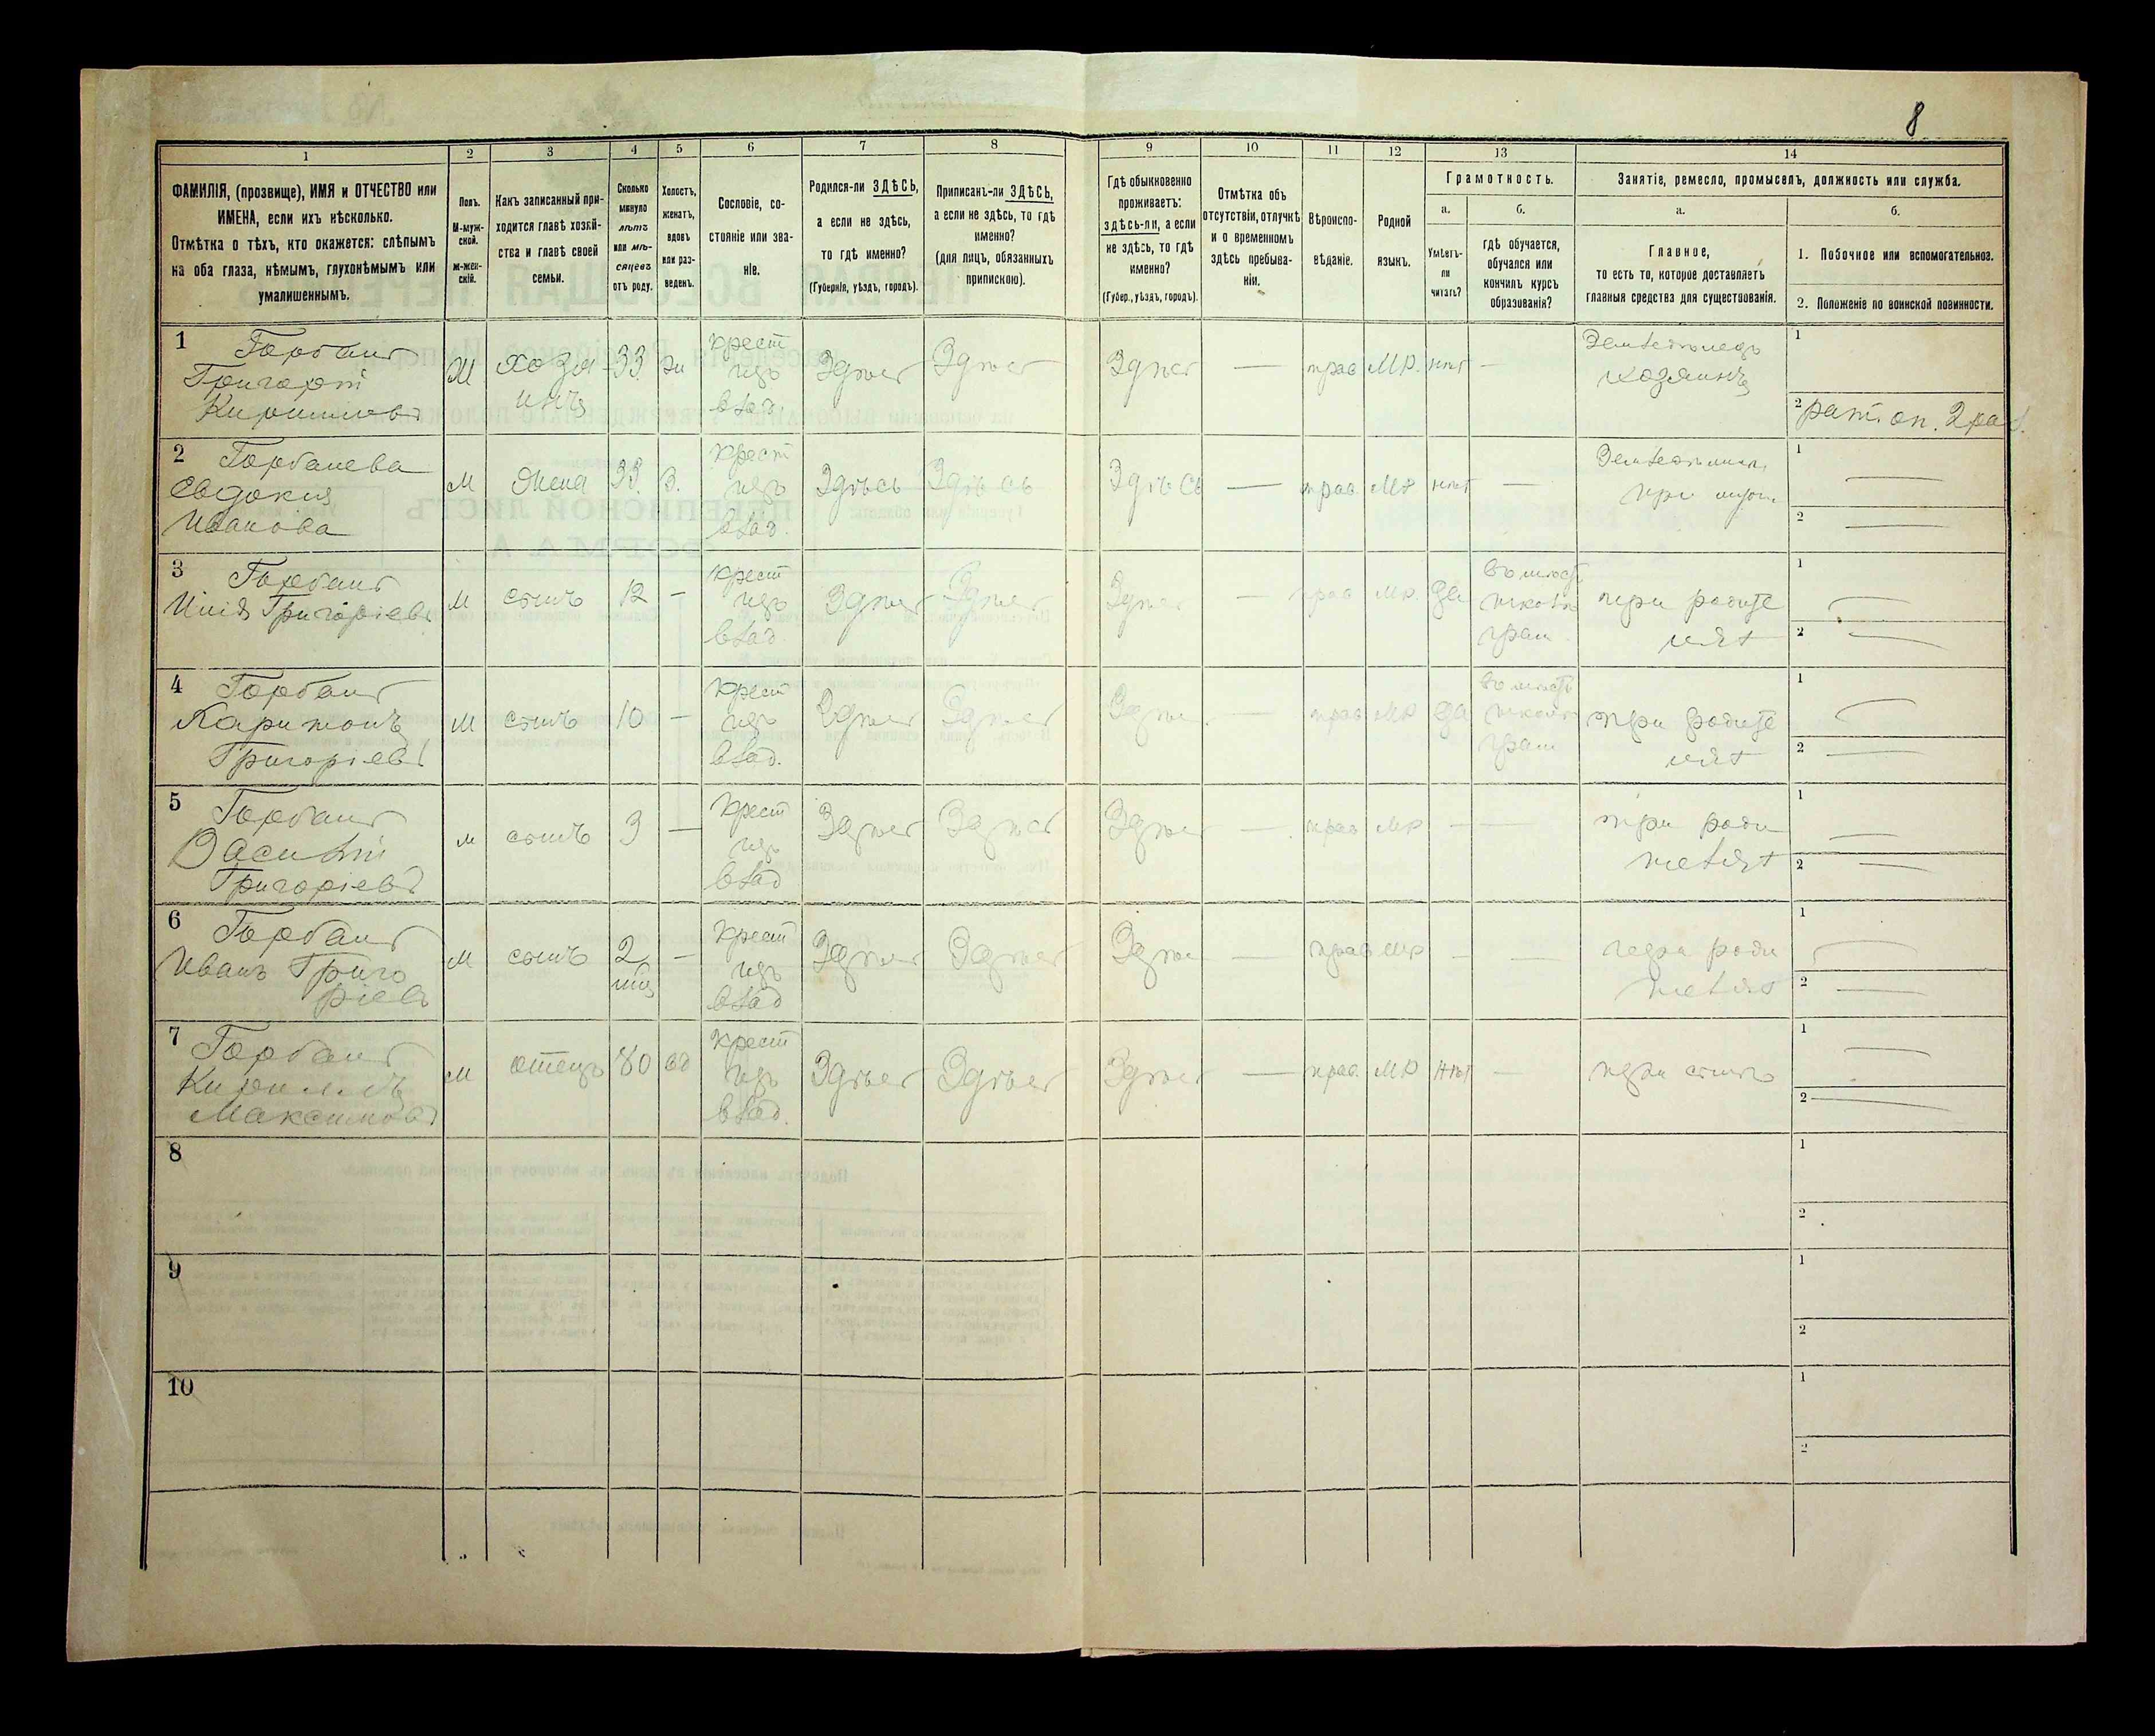 8
1 2 3 4 5 6 7 8 9 10 11 12 13 14
ФАМИЛІЯ, (прозвище), ИМЯ и ОТЧЕСТВО или
ИМЕНА, если ихъ нѣсколько.
Отмѣтка о тѣхъ, кто окажется: слѣпымъ
на оба глаза, нѣмымъ, глухонѣмымъ или
умалишеннымъ.
Полъ.
М-муж-
ской.
ж-жен-
скій.
Какъ записанный при-
ходится главѣ хозяй-
ства и главѣ своей
семьи.
Сколько
минуло
лѣтъ
или мѣ-
сяцевъ
отъ роду.
Холостъ,
женатъ,
вдовъ
или раз-
веденъ.
Сословіе, со-
стояніе или зва-
ніе.
Родился-ли ЗДѢСЬ,
а если не здѣсь,
то гдѣ именно?
(Губернія, уѣздъ, городъ).
Приписанъ-ли ЗДѢСЬ,
а если не здѣсь, то гдѣ
именно?
(для лицъ, обязанныхъ
припискою).
Гдѣ обыкновенно
проживаетъ:
здѣсь-ли, а если
не здѣсь, то гдѣ
именно?
(Губер., уѣздъ, городъ).
Отмѣтка объ
отсутствіи, отлучкѣ
и о временномъ
здѣсь пребыва-
ніи.
Вѣроиспо-
вѣданіе.
Родной
языкъ.
Грамотность.
а. б.
Умѣетъ-
ли
читать?
гдѣ обучается,
обучался или
кончилъ курсъ
образованія?
Занятіе, ремесло, промыселъ, должность или служба.
а. б.
Главное,
то есть то, которое доставляетъ
главныя средства для существованія.
1. Побочное или вспомогательное.
2. Положеніе по воинской повинности.
1 Горбань
Григорій
Кириловъ
хозя
инъ
33
крест
изъ
влад.
Здѣсь
Здѣсь
Здѣсь
—
прав
МР.
нѣт
—
Земледѣлецъ
хозяинъ
1
2 рат. оп. 2 раз.
2 Горбанева
Евдокия
Иванова
м
жена
33.
З.
крест
изъ
влад.
Здѣсь
Здѣсь
Здѣсь
—
прав.
МР
нѣт
—
1 —
2 —
3 Горбань
Григоріевъ
м
сынъ
12
—
крест
изъ
влад.
Здѣсь
Здѣсь
Здѣсь
—
прав
МР
да
при родите
лях
1 —
2 —
4 Горбань
Харитонъ
Григоріевъ
м
сынъ
10
—
крест
изъ
влад.
Здѣсь
Здѣсь
Здѣсь
—
прав
МР
да
при родите
лях
1 —
2 —
5 Горбань
Василий
Григоріевъ
м
сынъ
3
—
крест
изъ
влад
Здѣсь
Здѣсь
Здѣсь
—
прав
МР
—
—
при роди
телях
1 —
2 —
6 Горбань
Иванъ Григо
ріевъ
м
сынъ
2
—
крест
изъ
влад
Здѣсь
Здѣсь
Здѣсь
—
прав
МР
—
—
при роди
телях
1 —
2 —
7 Горбань
Кириллъ
Максимовъ
м
отецъ
80
вд
крест
изъ
влад.
Здѣсь
Здѣсь
Здѣсь
—
прав.
МР
нѣт
—
при сынѣ
1 —
2 —
8
1
2
9
1
2
10
1
2